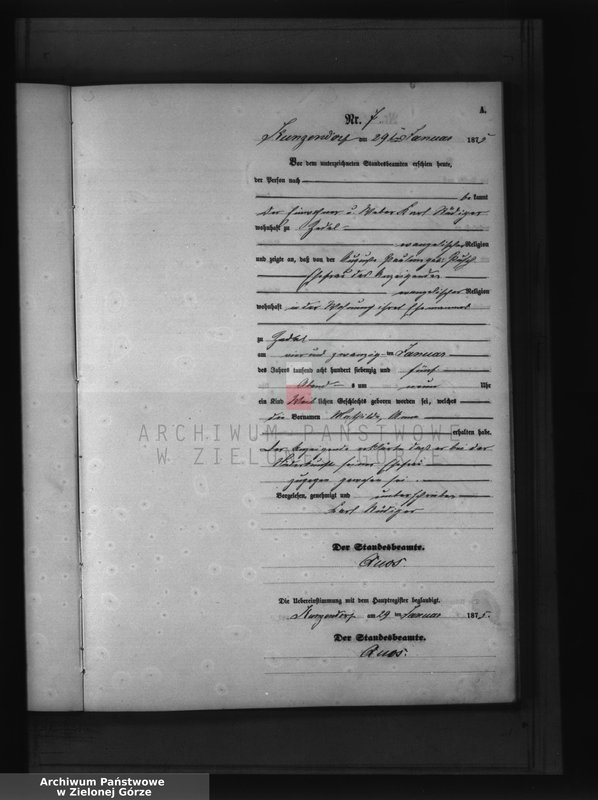 A.
Nr. 7
Kunzendorf am 29ten Januar 1875
Vor dem unterzeichneten Standesbeamten erschien heute,
der Person nach
be kannt
der Einwohner u. Weber Karl Rüdiger
wohnhaft zu Zedel
evangelischer Religion
und zeigte an, daß von der Auguste Pauline geb.
Ehefrau des Anzeigenden
evangelischer Religion
wohnhaft in der Wohnung ihres Ehemannes
zu Zedel
am vier und zwanzig ten Januar
des Jahres tausend acht hundert siebenzig und fünf
Abend s um neun Uhr
ein Kind weib lichen Geschlechts geboren worden sei, welches
die Vornamen Mathilde, Anna
erhalten habe.
Der Anzeigende erklärte daß er bei der
Niederkunft seiner Ehefrau
zugegen gewesen sei.
Vorgelesen, genehmigt und unterschrieben
Karl Rüdiger
Der Standesbeamte.
Die Uebereinstimmung mit dem Hauptregister beglaubigt.
Kunzendorf am 29 ten Januar 1875.
Der Standesbeamte.
ARCHIWUM PAŃSTWOWE
W ZIELONEJ GÓRZE
Archiwum Państwowe
w Zielonej Górze